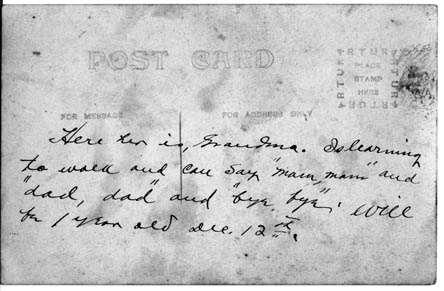 POST CARD
ARTURA
PLACE
STAMP
HERE
FOR MESSAGE
FOR ADDRESS ONLY
Here her is, Grandma. Is learning
to walk and can say "mam, mam" and
"dad, dad" and "bye bye". Will
be 1 year old Dec. 12th.